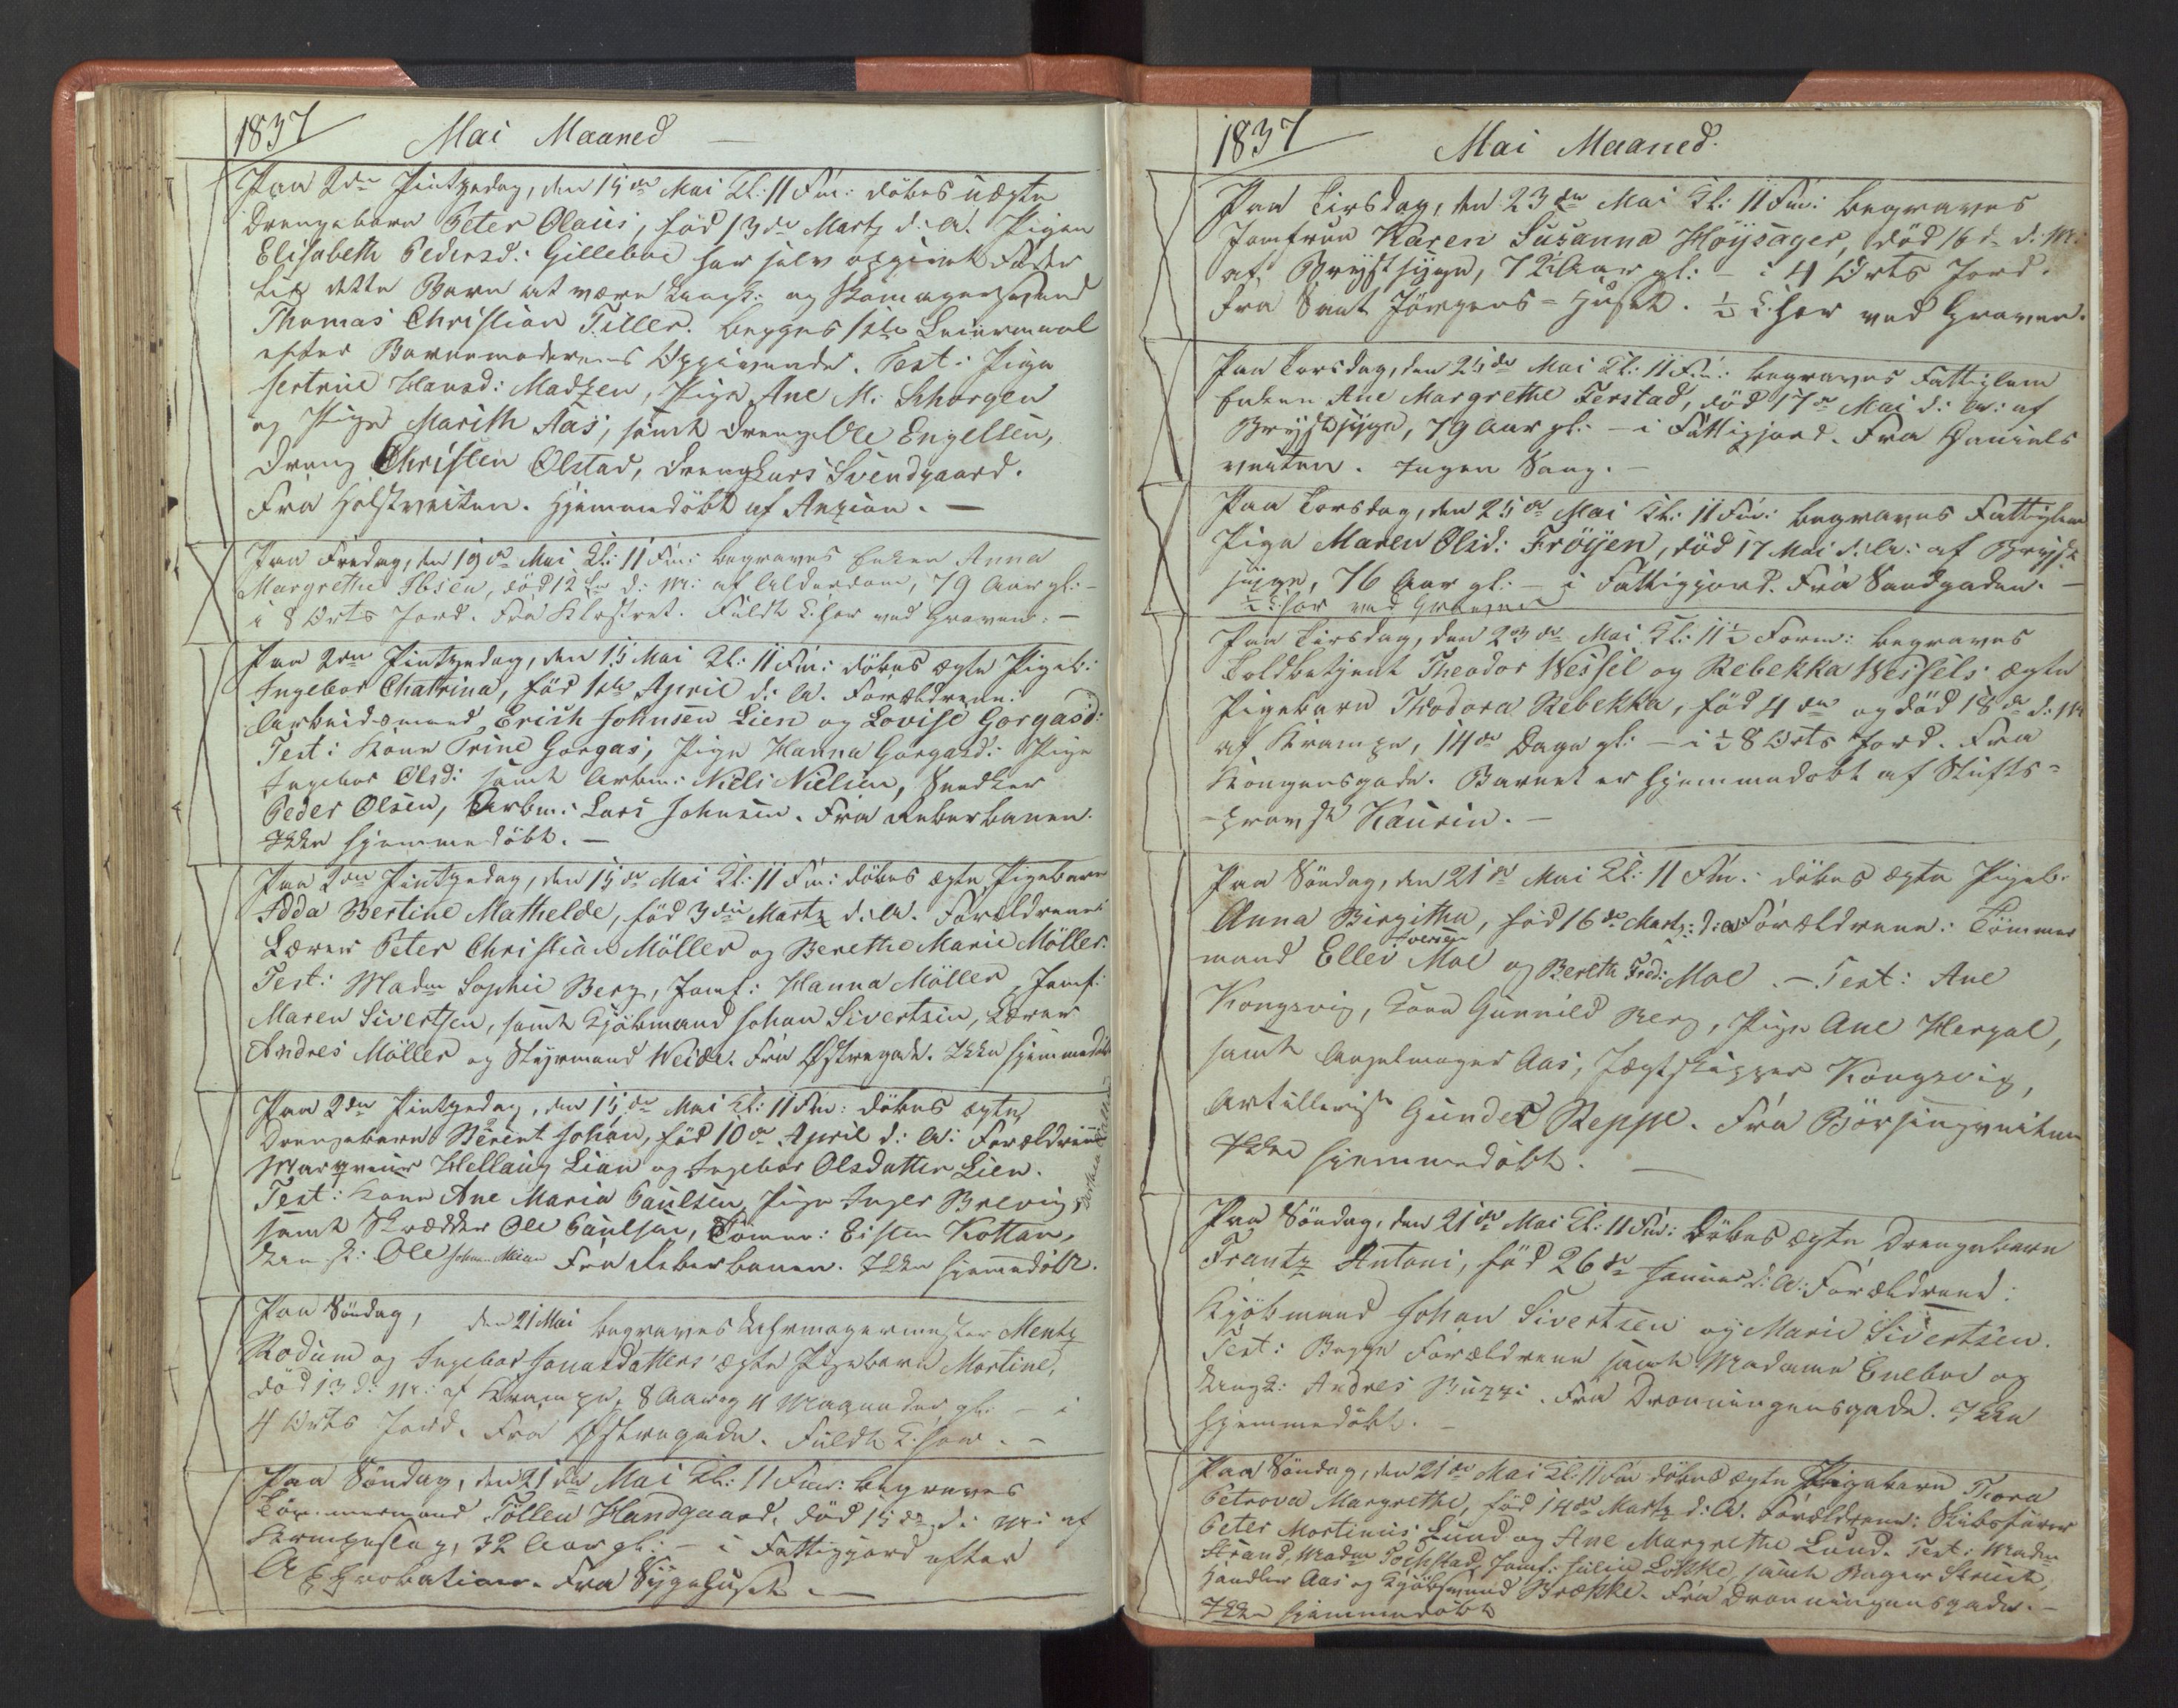 1837
Mai Maaned
Paa 2den Pintzedag, den 15de Mai Kl: 11 Fm: döbes uægte
Drengebarn Peter Olaus, föd 13de Martz d: A. Pigen
Elisabeth Pedersd: Gilleboe har selv opgivet Fader
til dette Barn at være og Skomagersvend
Thomas Christian Tiller. begges 1ste Leiermaal
efter Barnemoderens Opgivende. Test: Pige
Hansd: Madtzen, Pige Ane M. Schorgen
og Pige Marith Aas, samt Dreng Ole Engelsen,
Dreng Christen Olstad, Dreng Lars Svendgaard.
Fra Holstveiten. Hjemmedöbt af Anzion.
Paa Fredag, den 19de Mai Kl: 11 Fm: begraves Enken Anna
Margrethe Ibsen, död 12te d: M: af Alderdom, 79 Aar gl: -
i 8 Orts Jord. Fra Klostret. Fuldt Chor ved Graven. -
Paa 2den Pintzedag, den 15 Mai Kl: 11 Fm: döbes ægte Pigeb:
Ingebor Chatrina, föd 1ste April d: A. Forældrene:
Arbeidsmand Erich Johnsen Lien og Lovise Gorgasd:
Test: Kone Trine Gorgas, Pige Hanna Gorgasd: Pige
Ingebor Olsd: samt Arbm: Niels Nielsen, Snedker
Peder Olsen, Arbm: Lars Johnsen. Fra Reberbanen.
Ikke hjemmedöbt. -
Paa 2den Pintzedag, den 15de Mai Kl: 11 Fm: döbes ægte Pigebarn
Adda Bertine Mathelde, föd 3die Martz d: A. Forældrene:
Lærer Peter Christian Möller og Berethe Marie Möller.
Test: Madm Sophie Berg, Jomf: Hanna Möller, Jomf:
Maren Sivertsen, samt Kjöbmand Johan Sivertsen, Lærer
Andres Möller og Styrmand Weide. Fra Østregade. Ikke hjemmedöbt
Paa 2den Pintzedag, den 15de Mai Kl: 11 Fm: döbes ægte
Drengebarn Berent Johan, föd 10de April d: A: Forældrene
Hellaug Lian og Ingebor Olsdatter Lien.
Test: Kone Ane Maria Paulsen, Pige Inger Brevig,
samt Skrædder Ole Paulsen, Tömmr: Eisten Kottan,
Ole Fra Reberbanen. Ikke hjemmedöbt.
Paa Söndag, den 21 Mai begraves Mentz
Rodum og Ingebor Jonasdatters ægte Pigebarn Martine,
död 13 d: M: af Krampe, 8 Aar og 11 Maaneder gl: - i
4 Orts Jord. Fra Østregade. Fuldt Chor. -
Paa Söndag, den 21de Mai Kl: 11 Fm: begraves
Tömmermand Tollen Handgaard, död 15de d: M: af
Krampeslag, 32 Aar gl: - i Fattigjord efter
Approbation. Fra Sygehuset. -
1837
Mai Maaned.
Paa Tirsdag, den 23de Mai Kl: 11 Fm: begraves
Jomfrue Karen Susanna Höysager, död 16de d: M:
af Brystsyge, 72 Aar gl: - i 4 Orts Jord.
Fra Sanct Jörgens-Huset. ½ Chor ved Graven.
Paa Torsdag, den 25de Mai Kl: 11 Fm: begraves Fattiglem
Enken Ane Margrethe Ferstad, död 17de Mai d: A: af
Brystsyge, 79 Aar gl: - i Fattigjord. Fra Daniels
veiten. Ingen Sang. -
Paa Torsdag, den 25de Mai Kl: 11 Fm: begraves Fattiglem
Pige Maren Olsd: Fröyen, död 17 Mai d: A: af Bryst
syge, 76 Aar gl: - i Fattigjord. Fra Sandgaden. -
½ Chor ved Graven
Paa Tirsdag, den 23de Mai Kl: 11½ Form: begraves
Toldbetjent Theodor Wessel og Rebekka Wessels ægte
Pigebarn Thodora Rebekka, föd 4de og död 18de d: M
af Krampe, 14de Dage gl: - i ½ 8 Orts Jord. Fra
Kongensgade. Barnet er hjemmedöbt af Stifts=
-provst Kaurin. -
Paa Söndag, den 21de Mai Kl: 11 Fm: döbes ægte Pigeb:
Anna Birgitha, föd 16de Martz: d: A Forældrene: Tömmer
Iversen
mand Ellev Moe og Bereth Fred: Moe. - Test: Ane
Kongsvig, Kone Gunnild Berg, Pige Ane Hergal,
samt Aas, Jægtskipper Kongsvig,
Artillerist Gunder Reppe. Fra Börsingveiten
Ikke hjemmedöbt. -
Paa Söndag, den 21de Mai Kl: 11 Fm: Döbes ægte Drengebarn
Frantz Antoni, föd 26de Januar d: A: Forældrene:
Kjöbmand Johan Sivertsen og Marie Sivertsen.
Test: Begge Forældrene samt Madame Eneboe og
Andres Buzzi. Fra Dronningensgade. Ikke
hjemmedöbt. -
Paa Söndag, den 21de Mai Kl: 11 Fm döbes ægte Pigebarn Thora
Petrova Margrethe, föd 14de Martz d: A. Forældrene: Skibsförer
Peter Mortinus Lund og Ane Margrethe Lund. Test: Madm
Strand, Madm Jomf: Julie Lökke, samt Bager Strand,
Handler Aas og Kjöbmand Brække. Fra Dronningensgade. -
Ikke hjemmedöbt